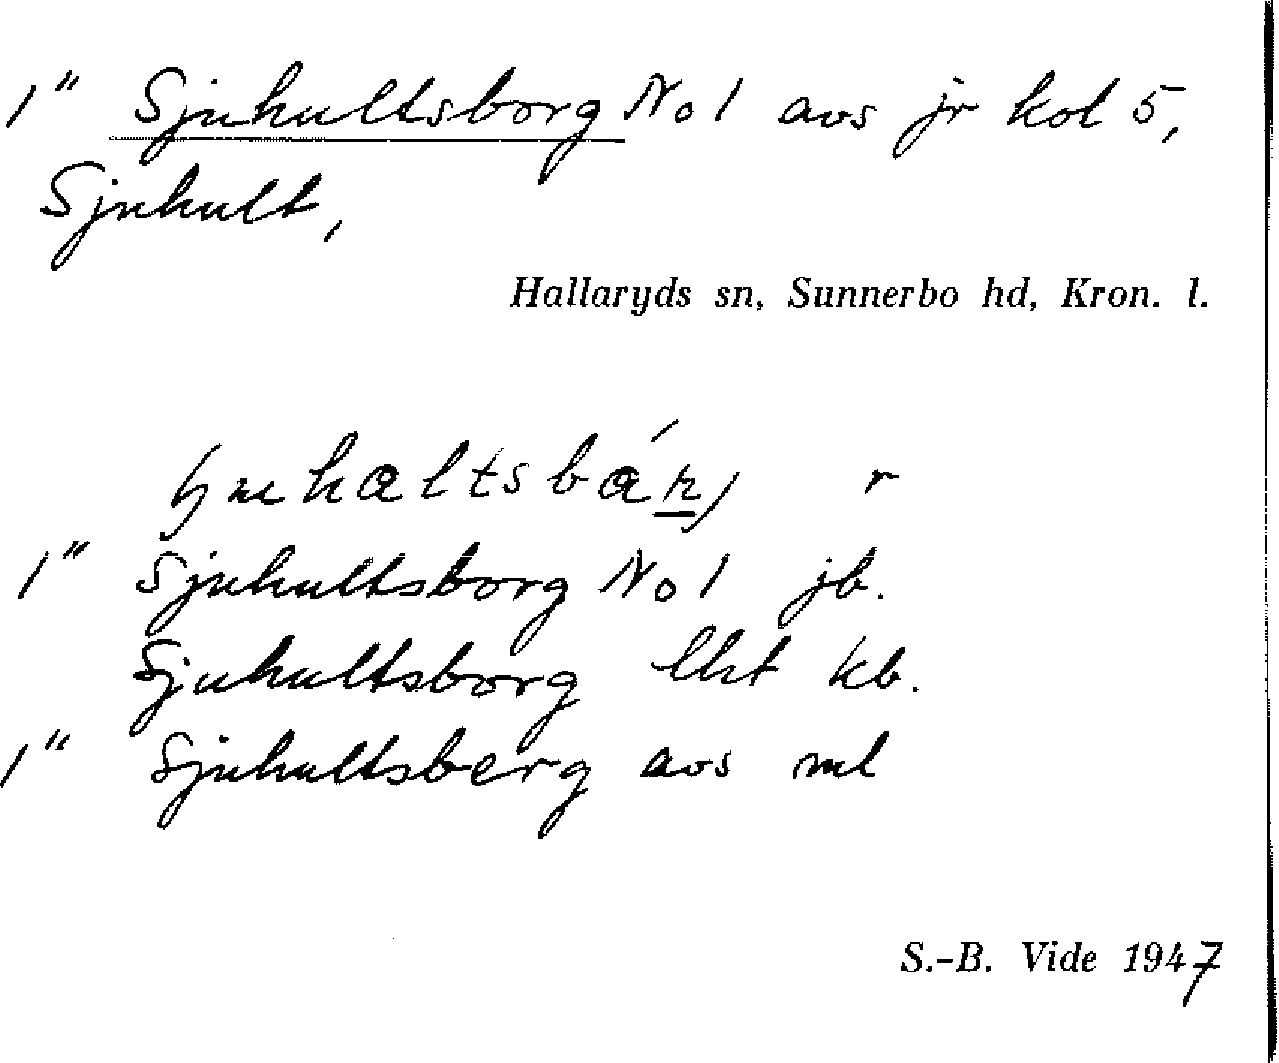 1" Sjuhultsborg No 1 avs jr kol 5,
Sjuhult,
Hallaryds sn, Sunnerbo hd, Kron. l.
r
1" Sjuhultsborg No 1 jb.
Sjuhultsborg lht kb.
1" Sjuhultsberg avs ml
S.-B. Vide 1947